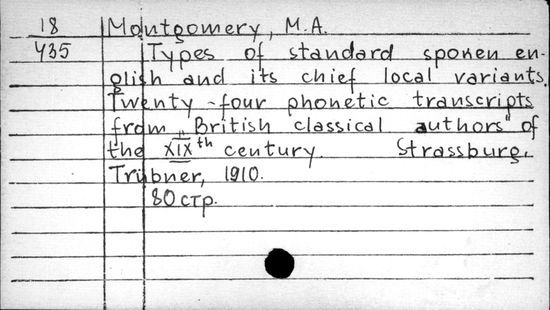 18 Montgomery, M.A.
435 Types of standard spoken en-
glish and its chief local variants.
Twenty-four phonetic transcripts
from „British classical authors" of
the XIXth century. Strassburg,
Trübner, 1910.
80 стр.